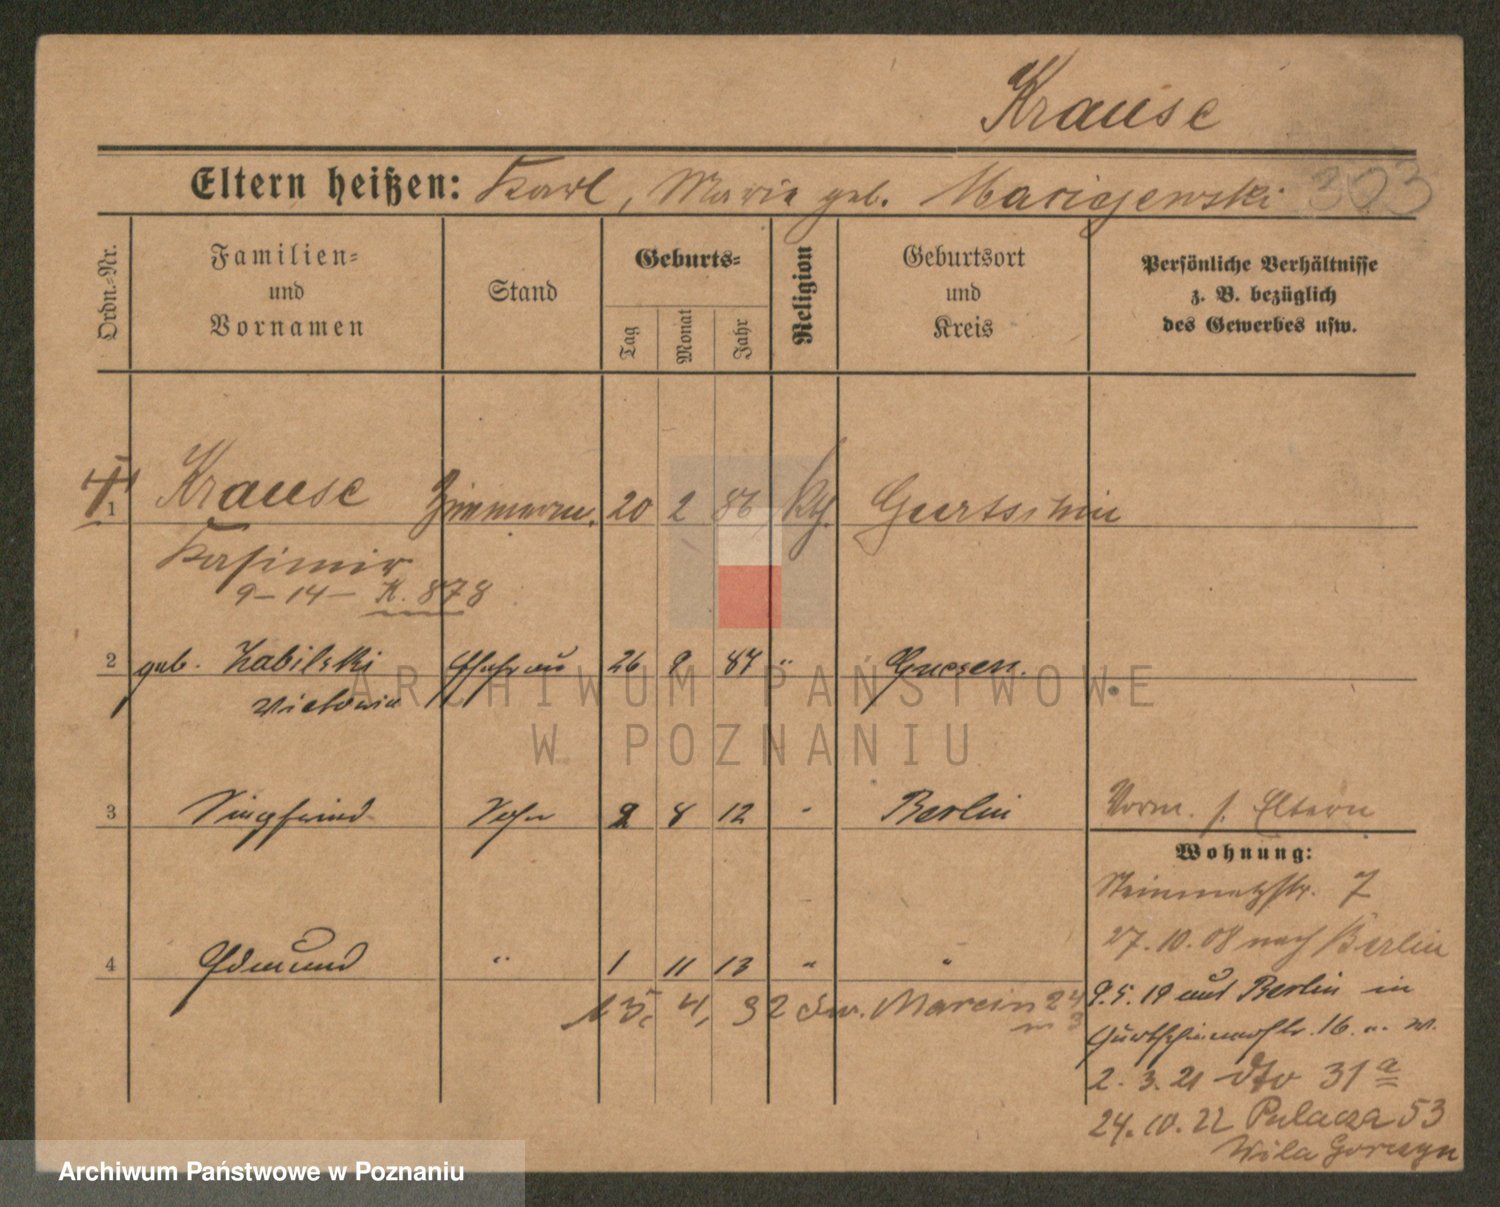 Krause
Eltern heißen: Karl, Marie geb. Maciejewski 303
Ordn.-Nr.
Familien-
und
Vornamen
Stand
Geburts-
Tag
Monat
Jahr
Religion
Geburtsort
und
Kreis
Persönliche Verhältnisse
z. B. bezüglich
des Gewerbes usw.
1 Krause Zimmerm. 20 2 86 kth. Gurtschin
Kasimir
9-14- K. 878
2 geb. Zabilski Ehefrau 26 9 87 " Gnesen.
Victoria
3 Siegfried Sohn 2 8 12 " Berlin Vorm. s. Eltern
Wohnung:
Steinmetzstr. 7
27.10.08 nach Berlin
4 Edmund " 1 11 13 " "
9.5.19 aus Berlin in
15. 4. 32 św. Marcin 24
Gurtschinerstr. 16. u. w.
2. 3. 21 dto 31 a
24.10.22 Palacza 53
Wila Gorczyn
ARCHIWUM PAŃSTWOWE
W POZNANIU
Archiwum Państwowe w Poznaniu